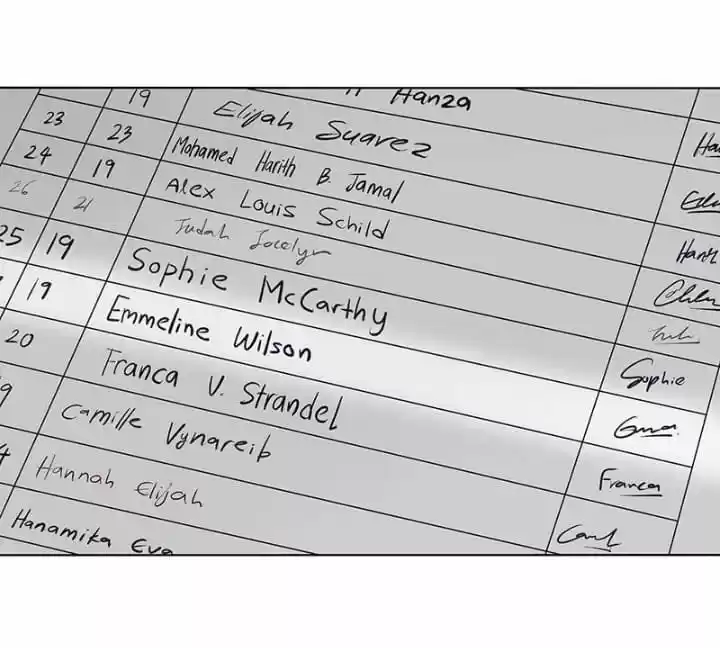 19 Hanza
23 23 Elijah Suarez Ha
24 19 Mohamed Harith B. Jamal
26 21 Alex Louis Schild Hanz
25 19 Judah Jocelyn
19 Sophie McCarthy Sophie
20 Emmeline Wilson Emma
9 Franca V. Strandel Franca
4 Camille Vynareib
Hannah Elijah
Hanamika Eva